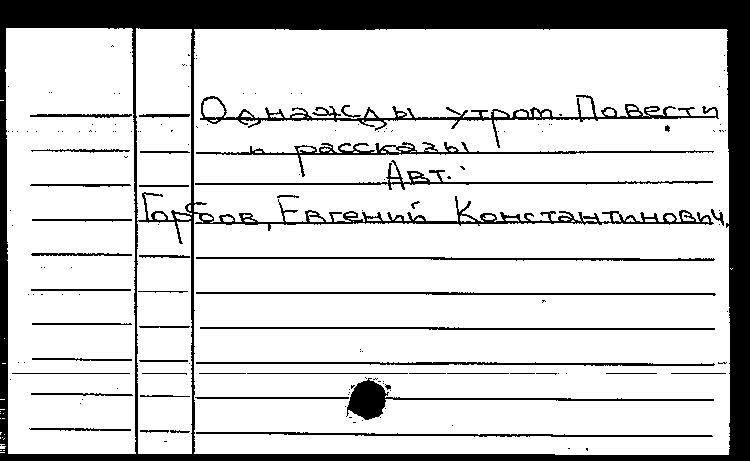 Однажды утром. Повести
и рассказы.
Авт.:
Горбов, Евгений Константинович.